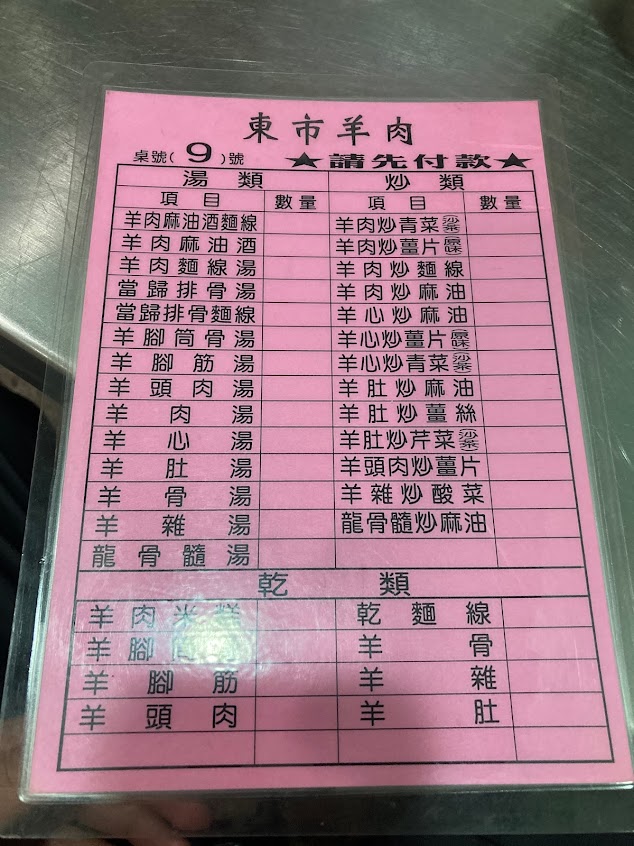 東市羊肉
桌號( 9 )號 ★請先付款★
湯類 炒類
項目 數量 項目 數量
羊肉麻油酒麵線 羊肉炒青菜(沙茶)
羊肉麻油酒 羊肉炒薑片(原味)
羊肉麵線湯 羊肉炒麵線
當歸排骨湯 羊肉炒麻油
當歸排骨麵線 羊心炒麻油
羊腳筒骨湯 羊心炒薑片(原味)
羊腳筋湯 羊心炒青菜(沙茶)
羊頭肉湯 羊肚炒麻油
羊肉湯 羊肚炒薑絲
羊心湯 羊肚炒芹菜(沙茶)
羊肚湯 羊頭肉炒薑片
羊骨湯 羊雜炒酸菜
羊雜湯 龍骨髓炒麻油
龍骨髓湯
乾類
羊肉米糕 乾麵線
羊腳筒骨 羊骨
羊腳筋 羊雜
羊頭肉 羊肚